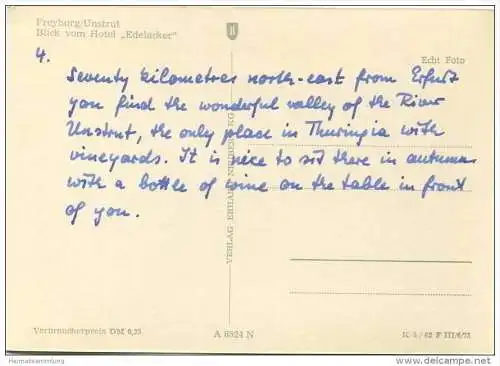 Freyburg/Unstrut
Blick vom Hotel „Edelacker"
Echt Foto
4.
Seventy kilometres north-east from Erfurt
you find the wonderful valley of the River
Unstrut, the only place in Thuringia with
vineyards. It is nice to sit there in autumn
with a bottle of wine on the table in front
of you.
VERLAG ERHARD NEUBERT KG
Verbraucherpreis DM 0,25
A 8324 N
Heimatsammlung
www.delcampe.net